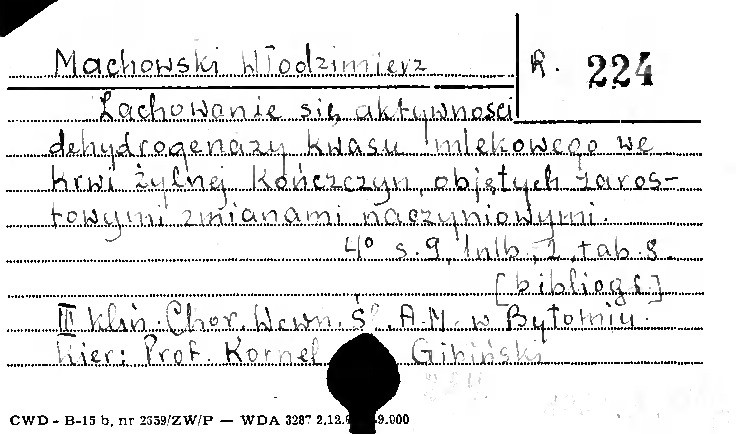 Machowski Włodzimierz
R. 224
Zachowanie się aktywności
dehydrogenazy kwasu mlekowego we
krwi żylnej kończczyn, objętych zaros-
towymi zmianami naczyniowymi.
4° s. 9, lnlb., 1, tab. 8.
[bibliogr.]
III klin. Chor. Wewn. Śl. A.M. w Bytomiu.
Kier: Prof. Kornel Gibiński
CWD - B-15 b, nr 2659/ZW/P — WDA 3287 2.12. 9.000